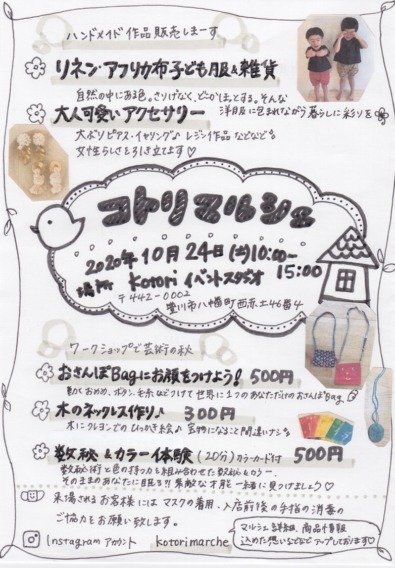 ハンドメイド作品販売しまーす
リネン・アフリカ布子ども服&雑貨
自然の中にある色。さりげなく、どこかほっとする。そんな
洋服に包まれながら暮らしに彩りを
大人可愛いアクセサリー
大ぶりピアス・イヤリング♪レジン作品などなど♪
女性らしさを引き立てます♡
コトリマルシェ
2020年10月24日(土)10:00~
15:00
場所 kotoriイベントスタジオ
〒442-0002
豊川市八幡町西赤土46番4
ワークショップで芸術の秋
おさんぽBagにお顔をつけよう! 500円
動くおめめ、ボタン、毛糸などつけて世界に1つのあなただけのおさんぽBag
木のネックレス作り♪ 300円
木にクレヨンでのひっかき絵♪宝物になること間違いナシ
数秘&カラー体験(20分)カラーカード付 500円
数秘術と色の持つ力を組み合わせた数秘&カラー
そのままのあなたに眠る 素敵な才能 一緒に見つけましょう♡
来場されるお客様にはマスクの着用、入店前後の手指の消毒の
ご協力をお願い致します。
Instagram アカウント kotorimarche
マルシェ詳細、商品情報
込めた想いなどなどアップしております♡